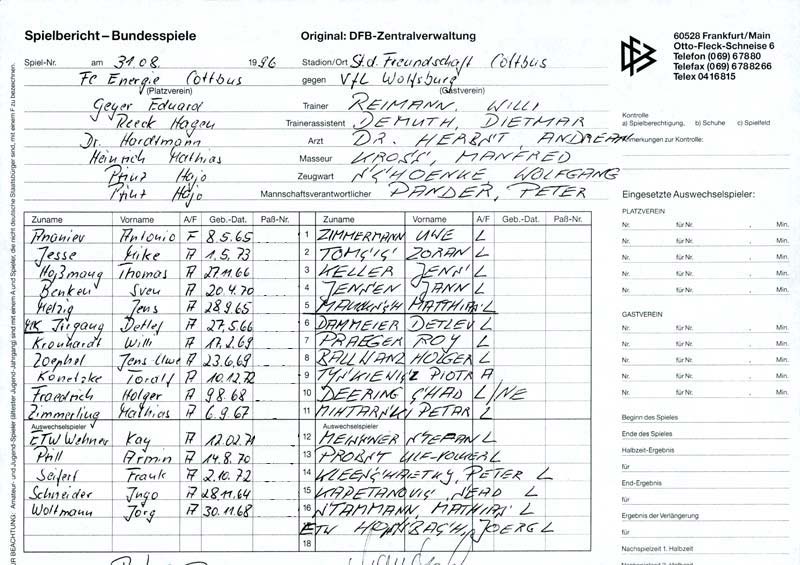 Spielbericht – Bundesspiele Original: DFB-Zentralverwaltung
60528 Frankfurt/Main
Otto-Fleck-Schneise 6
Telefon (069) 67880
Telefax (069) 6788266
Telex 0416815
Spiel-Nr. am 31.08. 1996 Stadion/Ort Std. Freundschaft Cottbus
FC Energie Cottbus gegen VfL Wolfsburg
(Platzverein) (Gastverein)
Geyer Eduard Trainer REIMANN, WILLI
Reeck Hagen Trainerassistent DEMUTH, DIETMAR
Dr. Hardtmann Arzt DR. HERBST, ANDREAS
Heinrich Mathias Masseur KROSS, MANFRED
Prinz Hajo Zeugwart WOLFGANG
Prinz Hajo Mannschaftsverantwortlicher PANDER, PETER
Kontrolle
a) Spielberechtigung, b) Schuhe c) Spielfeld
Bemerkungen zur Kontrolle:
Zuname Vorname A/F Geb.-Dat. Paß-Nr. Zuname Vorname A/F Geb.-Dat. Paß-Nr.
Ananiev Antonio F 8.5.65 1 ZIMMERMANN UWE L
Jesse Mike A 1.5.73 2 ZORAN L
Hoßmang Thomas A 27.11.66 3 KELLER JENS L
Benken Sven A 20.4.70 4 JENSEN JANN L
Melzig Jens A 28.9.65 5 MATTHIAS L
MK Jrgang Detlef A 27.5.66 6 DAMMEIER DETLEV L
Kronhardt Willi A 17.2.69 7 PRAEGER ROY L
Zoephel Jens Uwe A 23.6.69 8 BALLWANZ HOLGER L
Konetzke Toralf A 10.12.72 9 TYSKIEWICZ PIOTR A
Fraedrich Holger A 9.8.68 10 DEERING CHAD L/NE
Zimmerling Mathias A 6.9.67 11 PETAR L
Auswechselspieler Auswechselspieler
ETW Wehner Kay A 12.02.71 12 MEISSNER STEFAN L
Pohl Armin A 14.8.70 13 PROBST ULF-VOLKER L
Seifert Frank A 2.10.72 14 PETER L
Schneider Ingo A 28.11.64 15 KAPETANOVIC, NEAD L
Woltmann Jörg A 30.11.68 16 STAMMANN, MATHIAS L
ETW JOERG L
18
Eingesetzte Auswechselspieler:
PLATZVEREIN
Nr. für Nr. , Min.
Nr. für Nr. , Min.
Nr. für Nr. , Min.
Nr. für Nr. , Min.
Nr. für Nr. , Min.
GASTVEREIN
Nr. für Nr. , Min.
Nr. für Nr. , Min.
Nr. für Nr. , Min.
Nr. für Nr. , Min.
Nr. für Nr. , Min.
Beginn des Spieles
Ende des Spieles
Halbzeit-Ergebnis
für
End-Ergebnis
für
Ergebnis der Verlängerung
für
Nachspielzeit 1. Halbzeit